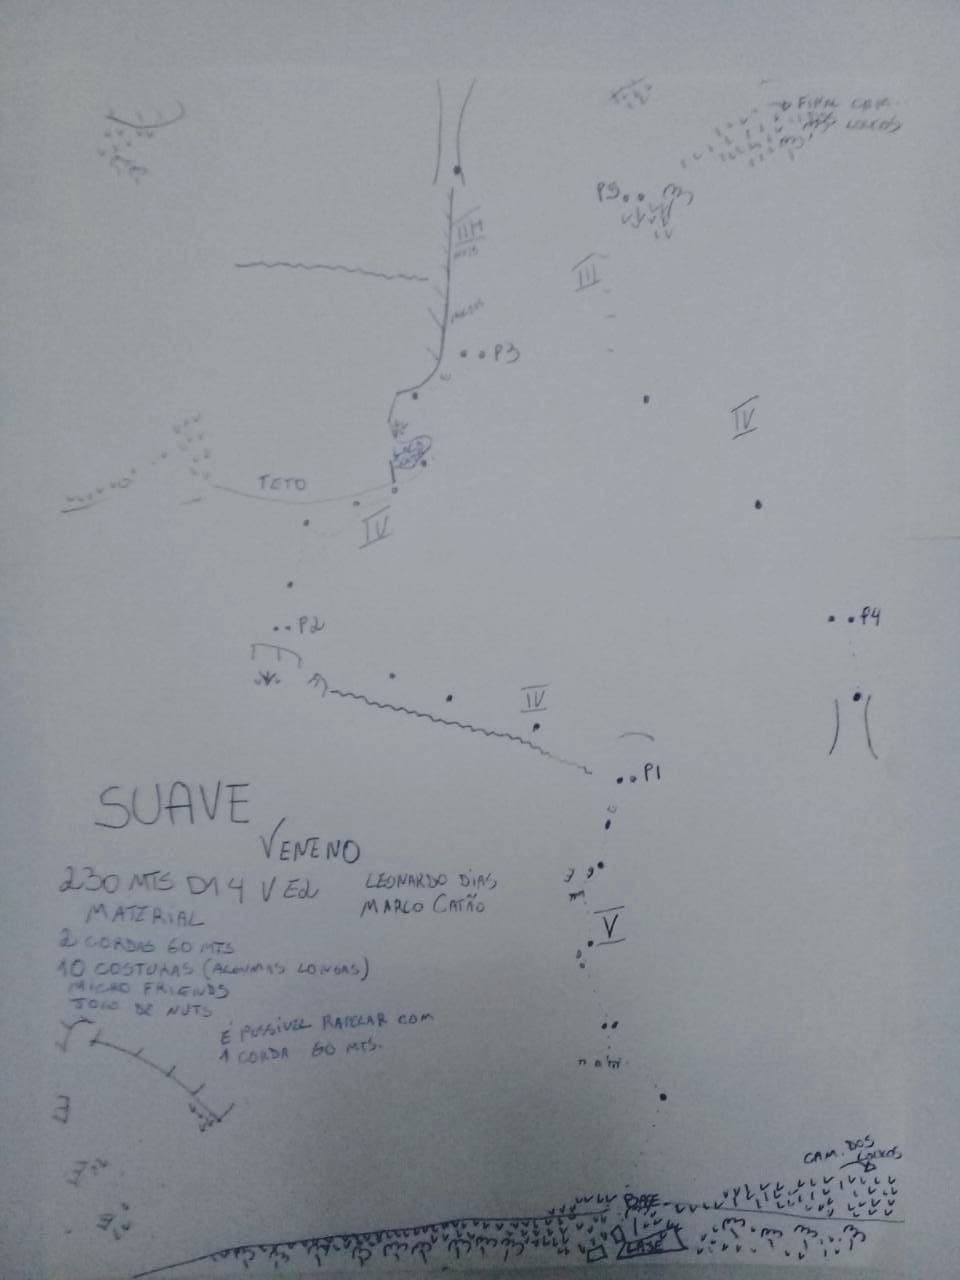 FINAL CAM.
DOS LOUCOS
P5
III
P3
IV
TETO
IV
P2
P4
IV
P1
SUAVE
VENENO
230 MTS D1 4 V E2
LEONARDO DIAS
MARCO CATÃO
MATERIAL
2 CORDAS 60 MTS
10 COSTURAS (ALGUMAS LONGAS)
MICRO FRIENDS
JOGO DE NUTS
V
É POSSÍVEL RAPELAR COM
1 CORDA 60 MTS.
CAM. DOS
LOUCOS
BASE
LAJE